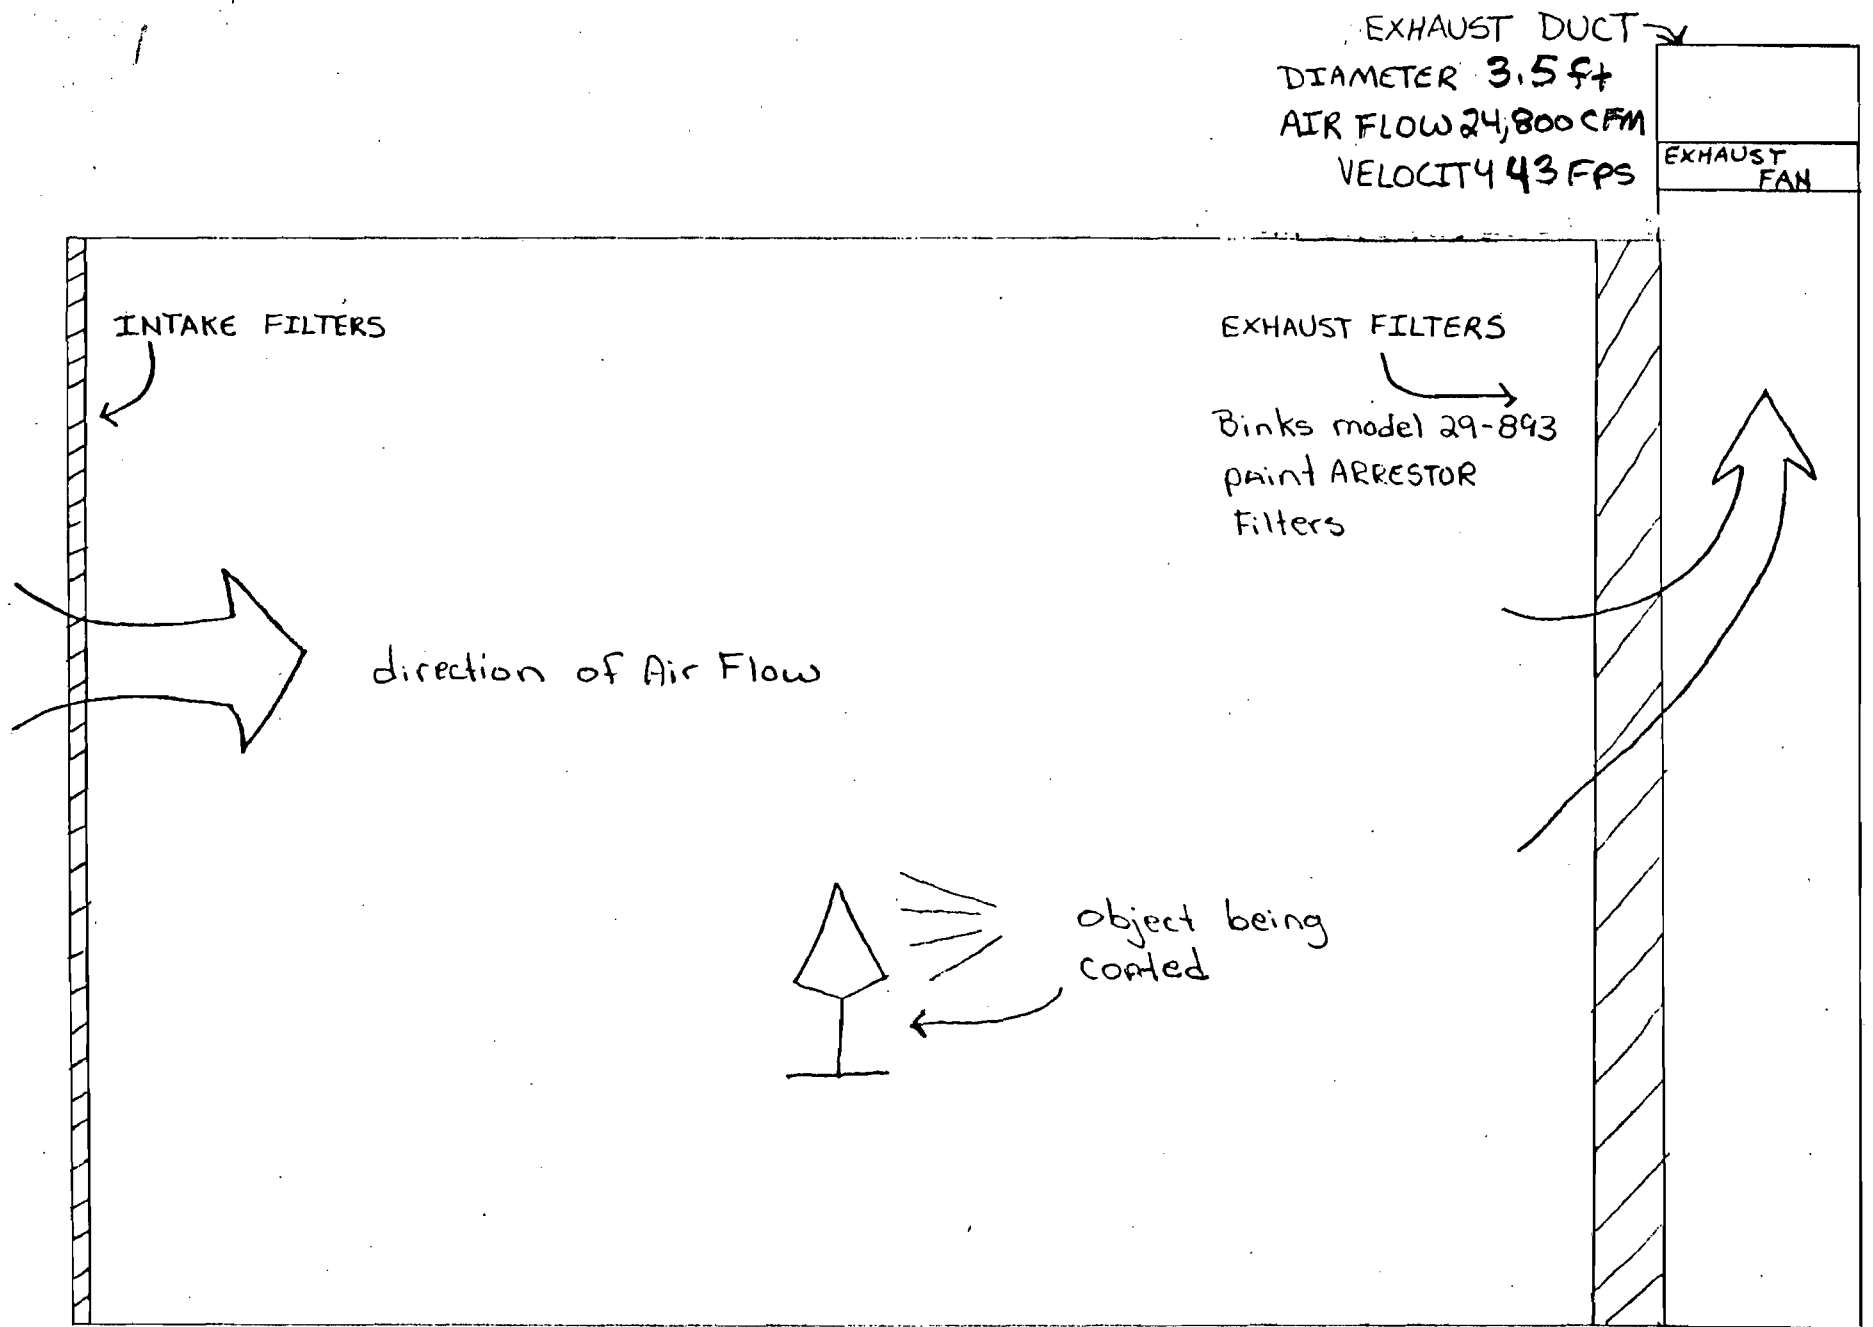 EXHAUST DUCT
DIAMETER 3.5 ft
AIR FLOW 24,800 CFM
VELOCITY 43 FPS
EXHAUST
FAN
INTAKE FILTERS
EXHAUST FILTERS
Binks model 29-893
paint ARRESTOR
Filters
direction of Air Flow
object being
coated